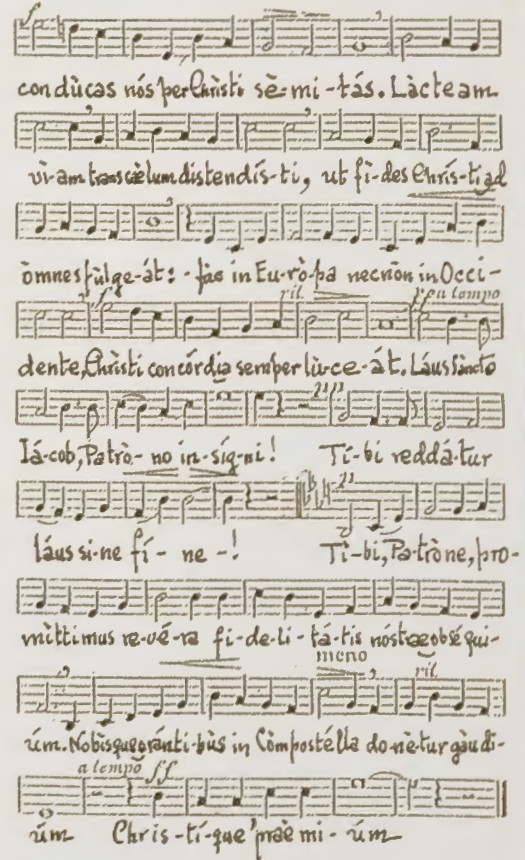 f
condùcas nós per Christi sè-mi-tás. Làcteam
vi-am trans cælum distendís-ti, ut fì-des Chrís-ti ad
òmnes fùlge-át: - fac in Eu-rò-pa necnòn in Occi-
ril. a tempo
dente, Chrìsti concórdia semper lù-ce-át. Láus Sàncto
Iá-cob, Patrò-no in-síg-ni! Tí-bi reddá-tur
láus si-ne fí-ne-! Tì-bi, Pa-tròne, pro-
mìttimus re-vé-ra fi-de-li-tá-tis nóstræ obséqui-
meno ril.
úm. Nobìsque oránti-bùs in Còmpostélla do-nè-tur gàudi-
a tempo ff
úm Chrìs-tí-que præ mi-úm